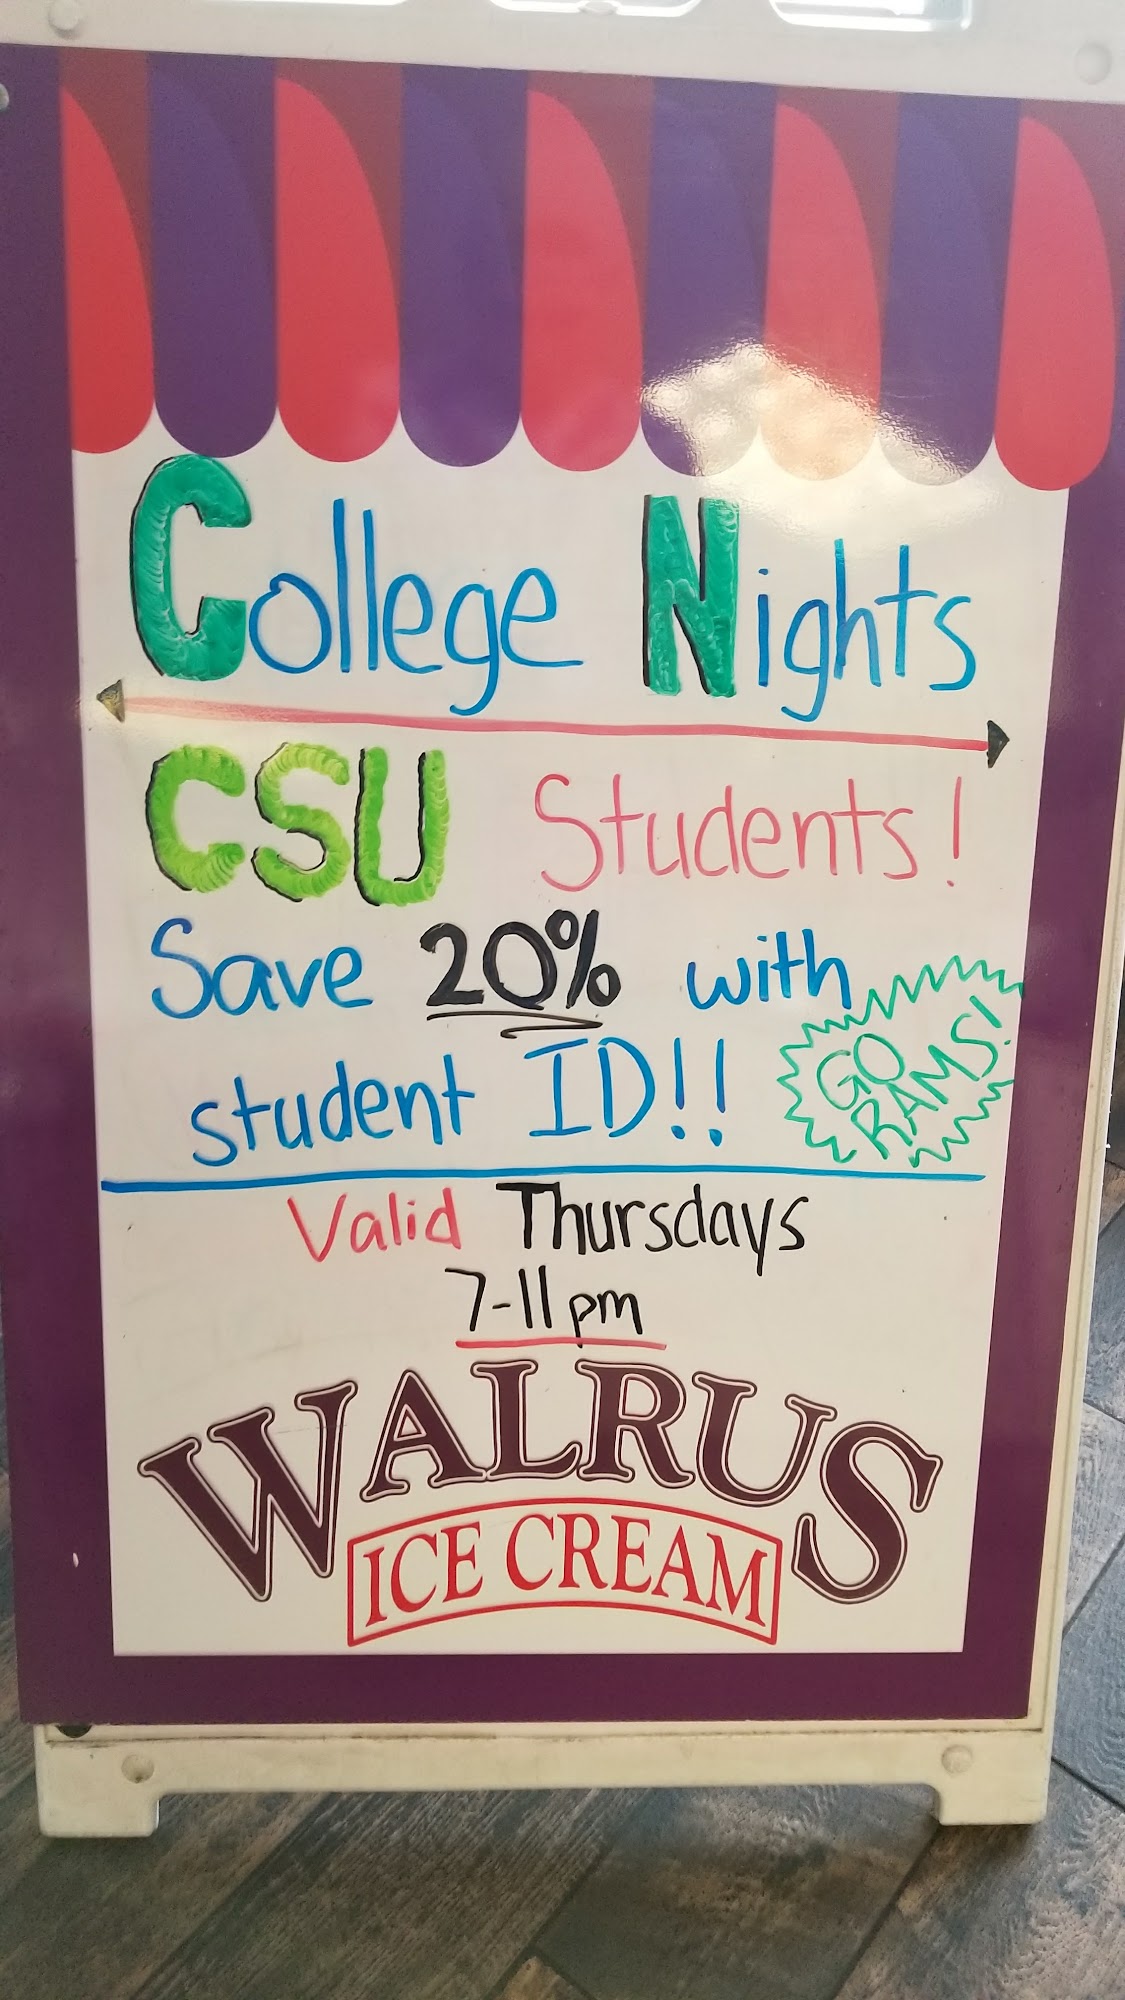 College Nights
CSU Students!
Save 20% with
student ID!!
GO
RAMS!
Valid Thursdays
7-11pm
WALRUS
ICE CREAM